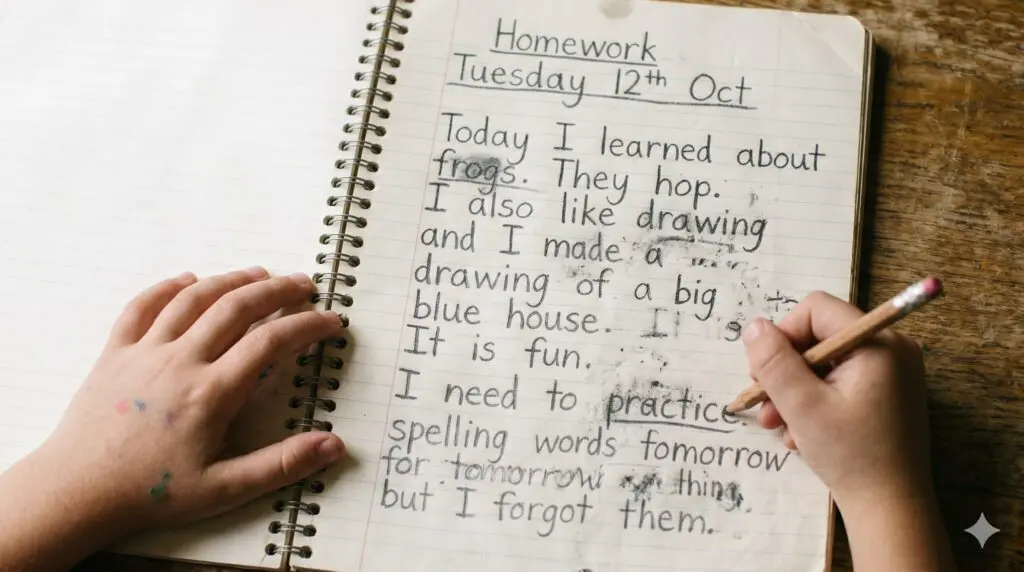 Homework
Tuesday 12th Oct
Today I learned about
frogs. They hop.
I also like drawing
and I made a
drawing of a big
blue house. It
It is fun.
I need to practice
spelling words fomorrow
for tomorrow thing.
but I forgot them.